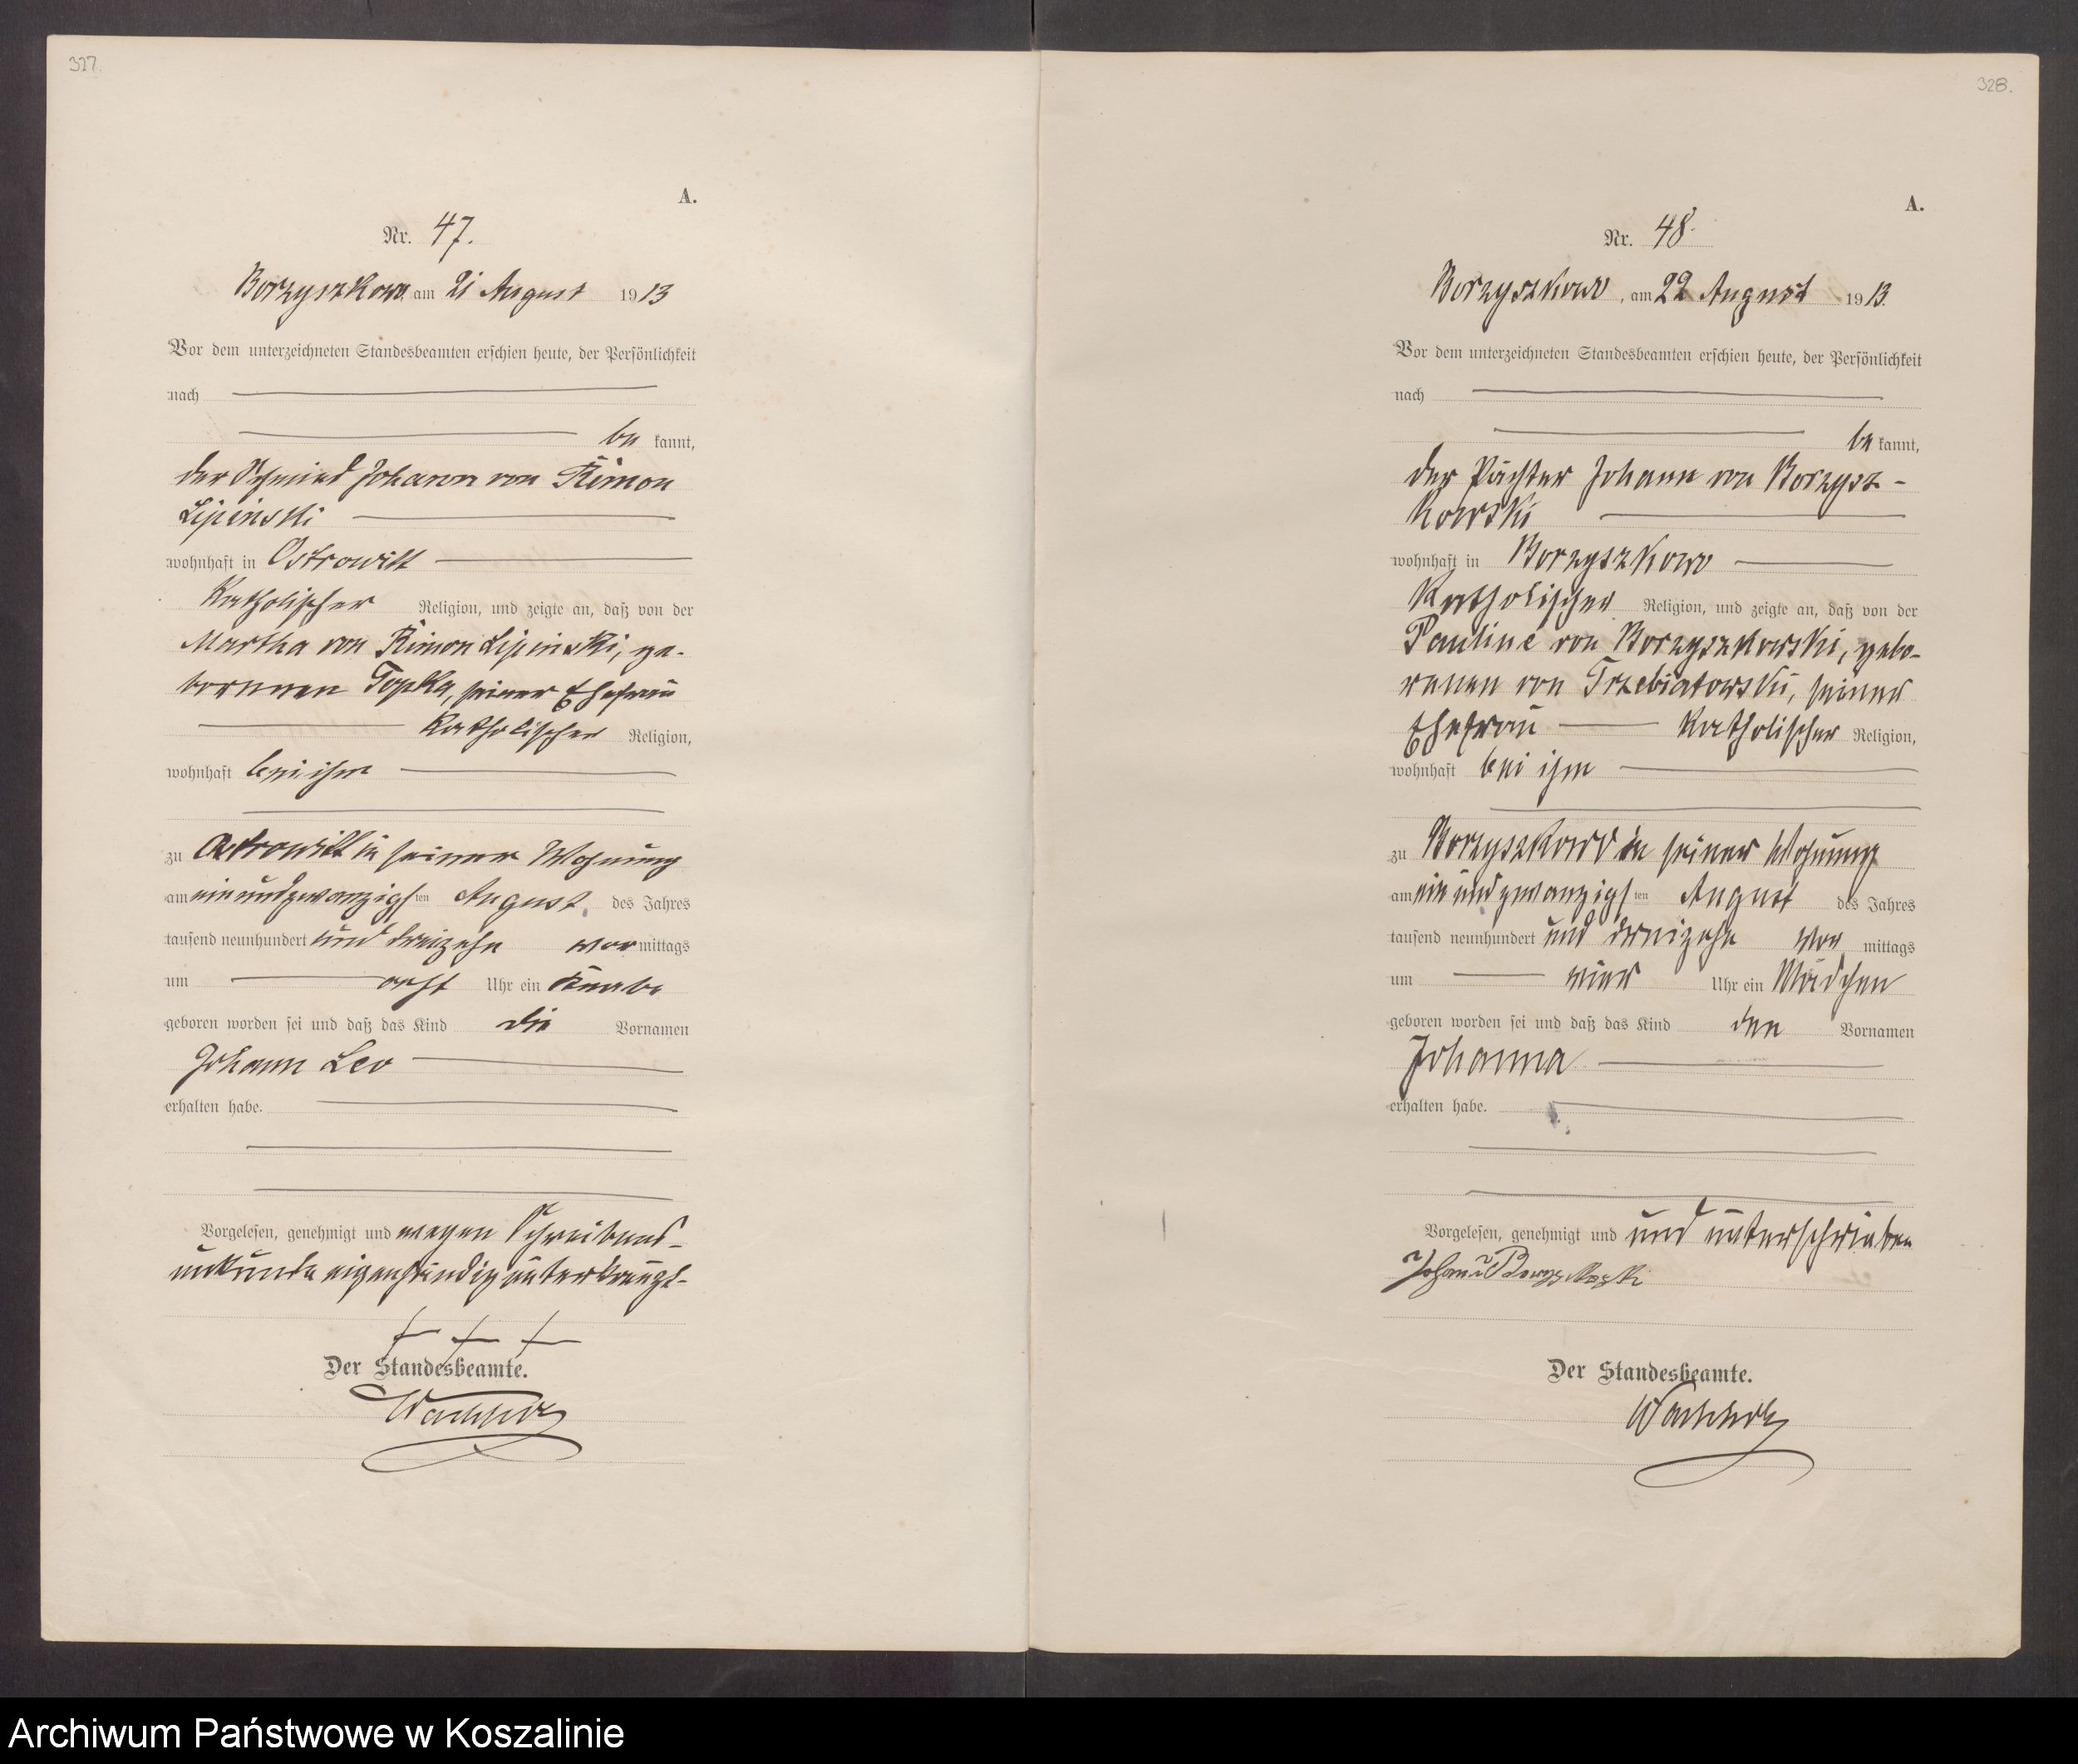 327.
A.
Nr. 47.
Borzyszkowo am 21 August 1913
Vor dem unterzeichneten Standesbeamten erschien heute, der Persönlichkeit
nach
be kannt,
der Schmied Johann von Kimon
Lipinski
wohnhaft in Ostrowitt
katholischer Religion, und zeigte an, daß von der
Martha von Kimon Lipinski, ge-
borenen Topka, seiner Ehefrau
katholischer Religion,
wohnhaft bei ihm
zu Ostrowitt in seiner Wohnung
am ein und zwanzigsten August des Jahres
tausend neunhundert und dreizehn vor mittags
um acht Uhr ein Knabe
geboren worden sei und daß das Kind die Vornamen
Johann Leo
erhalten habe.
Vorgelesen, genehmigt und wegen Schreibens-
unkunde eigenhändig unterkreuzt.
+ + +
Der Standesbeamte.
328.
A.
Nr. 48.
Borzyszkowo, am 22 August 1913.
Vor dem unterzeichneten Standesbeamten erschien heute, der Persönlichkeit
nach
be kannt,
der Pächter Johann von Borzysz-
kowski
wohnhaft in Borzyszkowo
katholischer Religion, und zeigte an, daß von der
Pauline von Borzyszkowski, gebo-
renen von Trzebiatowski, seiner
Ehefrau katholischer Religion,
wohnhaft bei ihm
zu Borzyszkowo in seiner Wohnung
am ein und zwanzigsten August des Jahres
tausend neunhundert und dreizehn vor mittags
um vier Uhr ein Mädchen
geboren worden sei und daß das Kind den Vornamen
Johanna
erhalten habe.
Vorgelesen, genehmigt und und unterschrieben
Johann v
Der Standesbeamte.
Archiwum Państwowe w Koszalinie